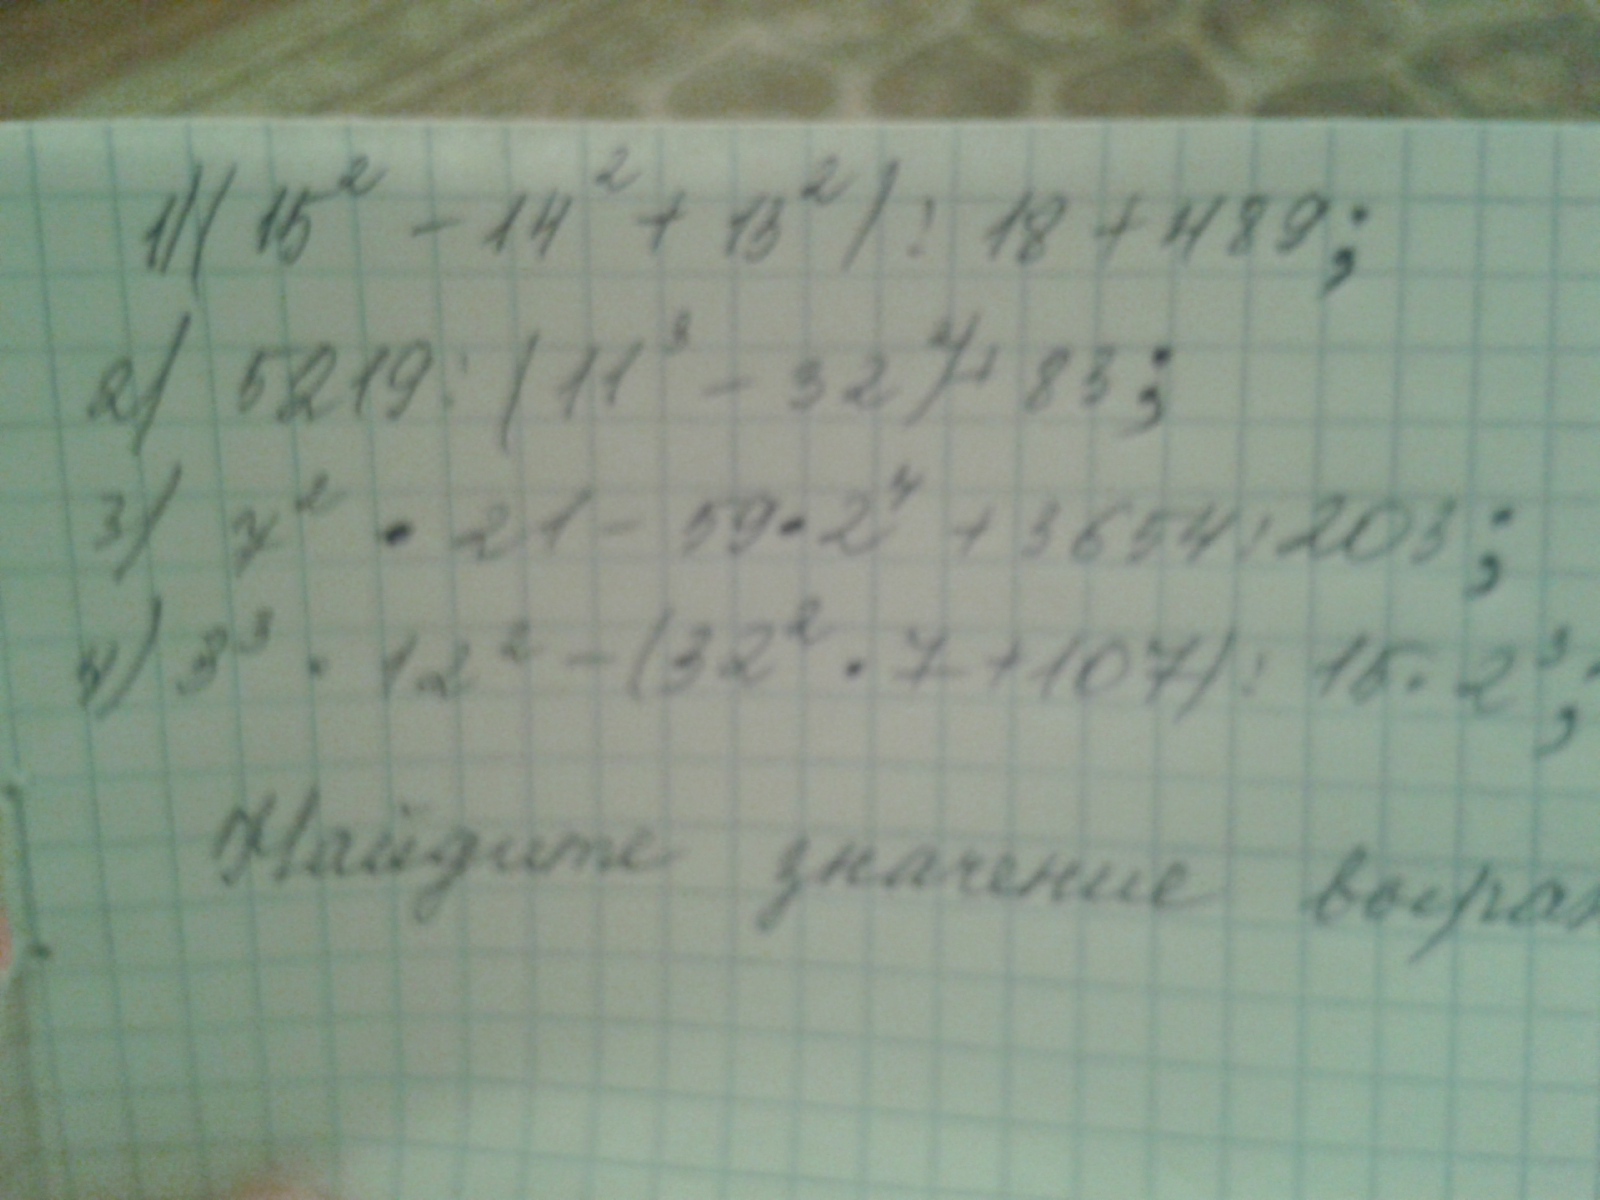 1) (15² - 14² + 13²) : 18 + 489;
2) 5219 : (11³ - 32²) + 83;
3) 7² · 21 - 59 · 2⁴ + 3654 : 203;
4) 3³ · 12² - (32² · 7 + 107) : 15 · 2³;
Найдите значение выраж